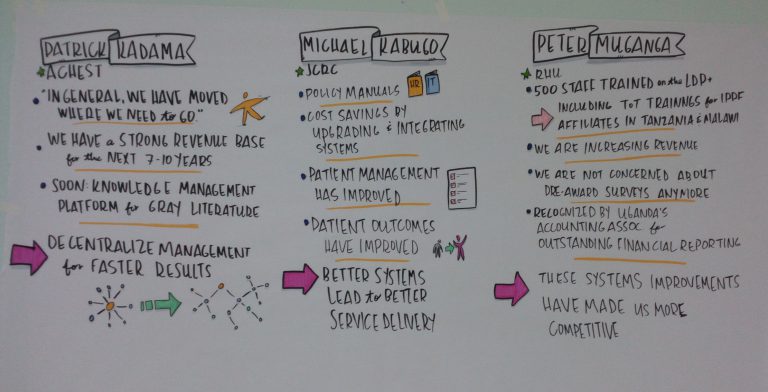 PATRICK KADAMA
ACHEST
• "IN GENERAL, WE HAVE MOVED
WHERE WE NEED to GO."
• WE HAVE a STRONG REVENUE BASE
for the NEXT 7-10 YEARS
• SOON: KNOWLEDGE MANAGEMENT
PLATFORM for GRAY LITERATURE
DECENTRALIZE MANAGEMENT
for FASTER RESULTS
MICHAEL KABUGO
JCRC
• POLICY MANUALS
HR
IT
• COST SAVINGS BY
UPGRADING & INTEGRATING
SYSTEMS
• PATIENT MANAGEMENT
HAS IMPROVED
• PATIENT OUTCOMES
HAVE IMPROVED
BETTER SYSTEMS
LEAD to BETTER
SERVICE DELIVERY
PETER MUGANGA
RHU
• 500 STAFF TRAINED on the LDP+
INCLUDING ToT TRAININGS for IPPF
AFFILIATES IN TANZANIA & MALAWI
• WE ARE INCREASING REVENUE
• WE ARE NOT CONCERNED ABOUT
PRE-AWARD SURVEYS ANYMORE
• RECOGNIZED BY UGANDA'S
ACCOUNTING ASSOC for
OUTSTANDING FINANCIAL REPORTING
THESE SYSTEMS IMPROVEMENTS
HAVE MADE US MORE
COMPETITIVE